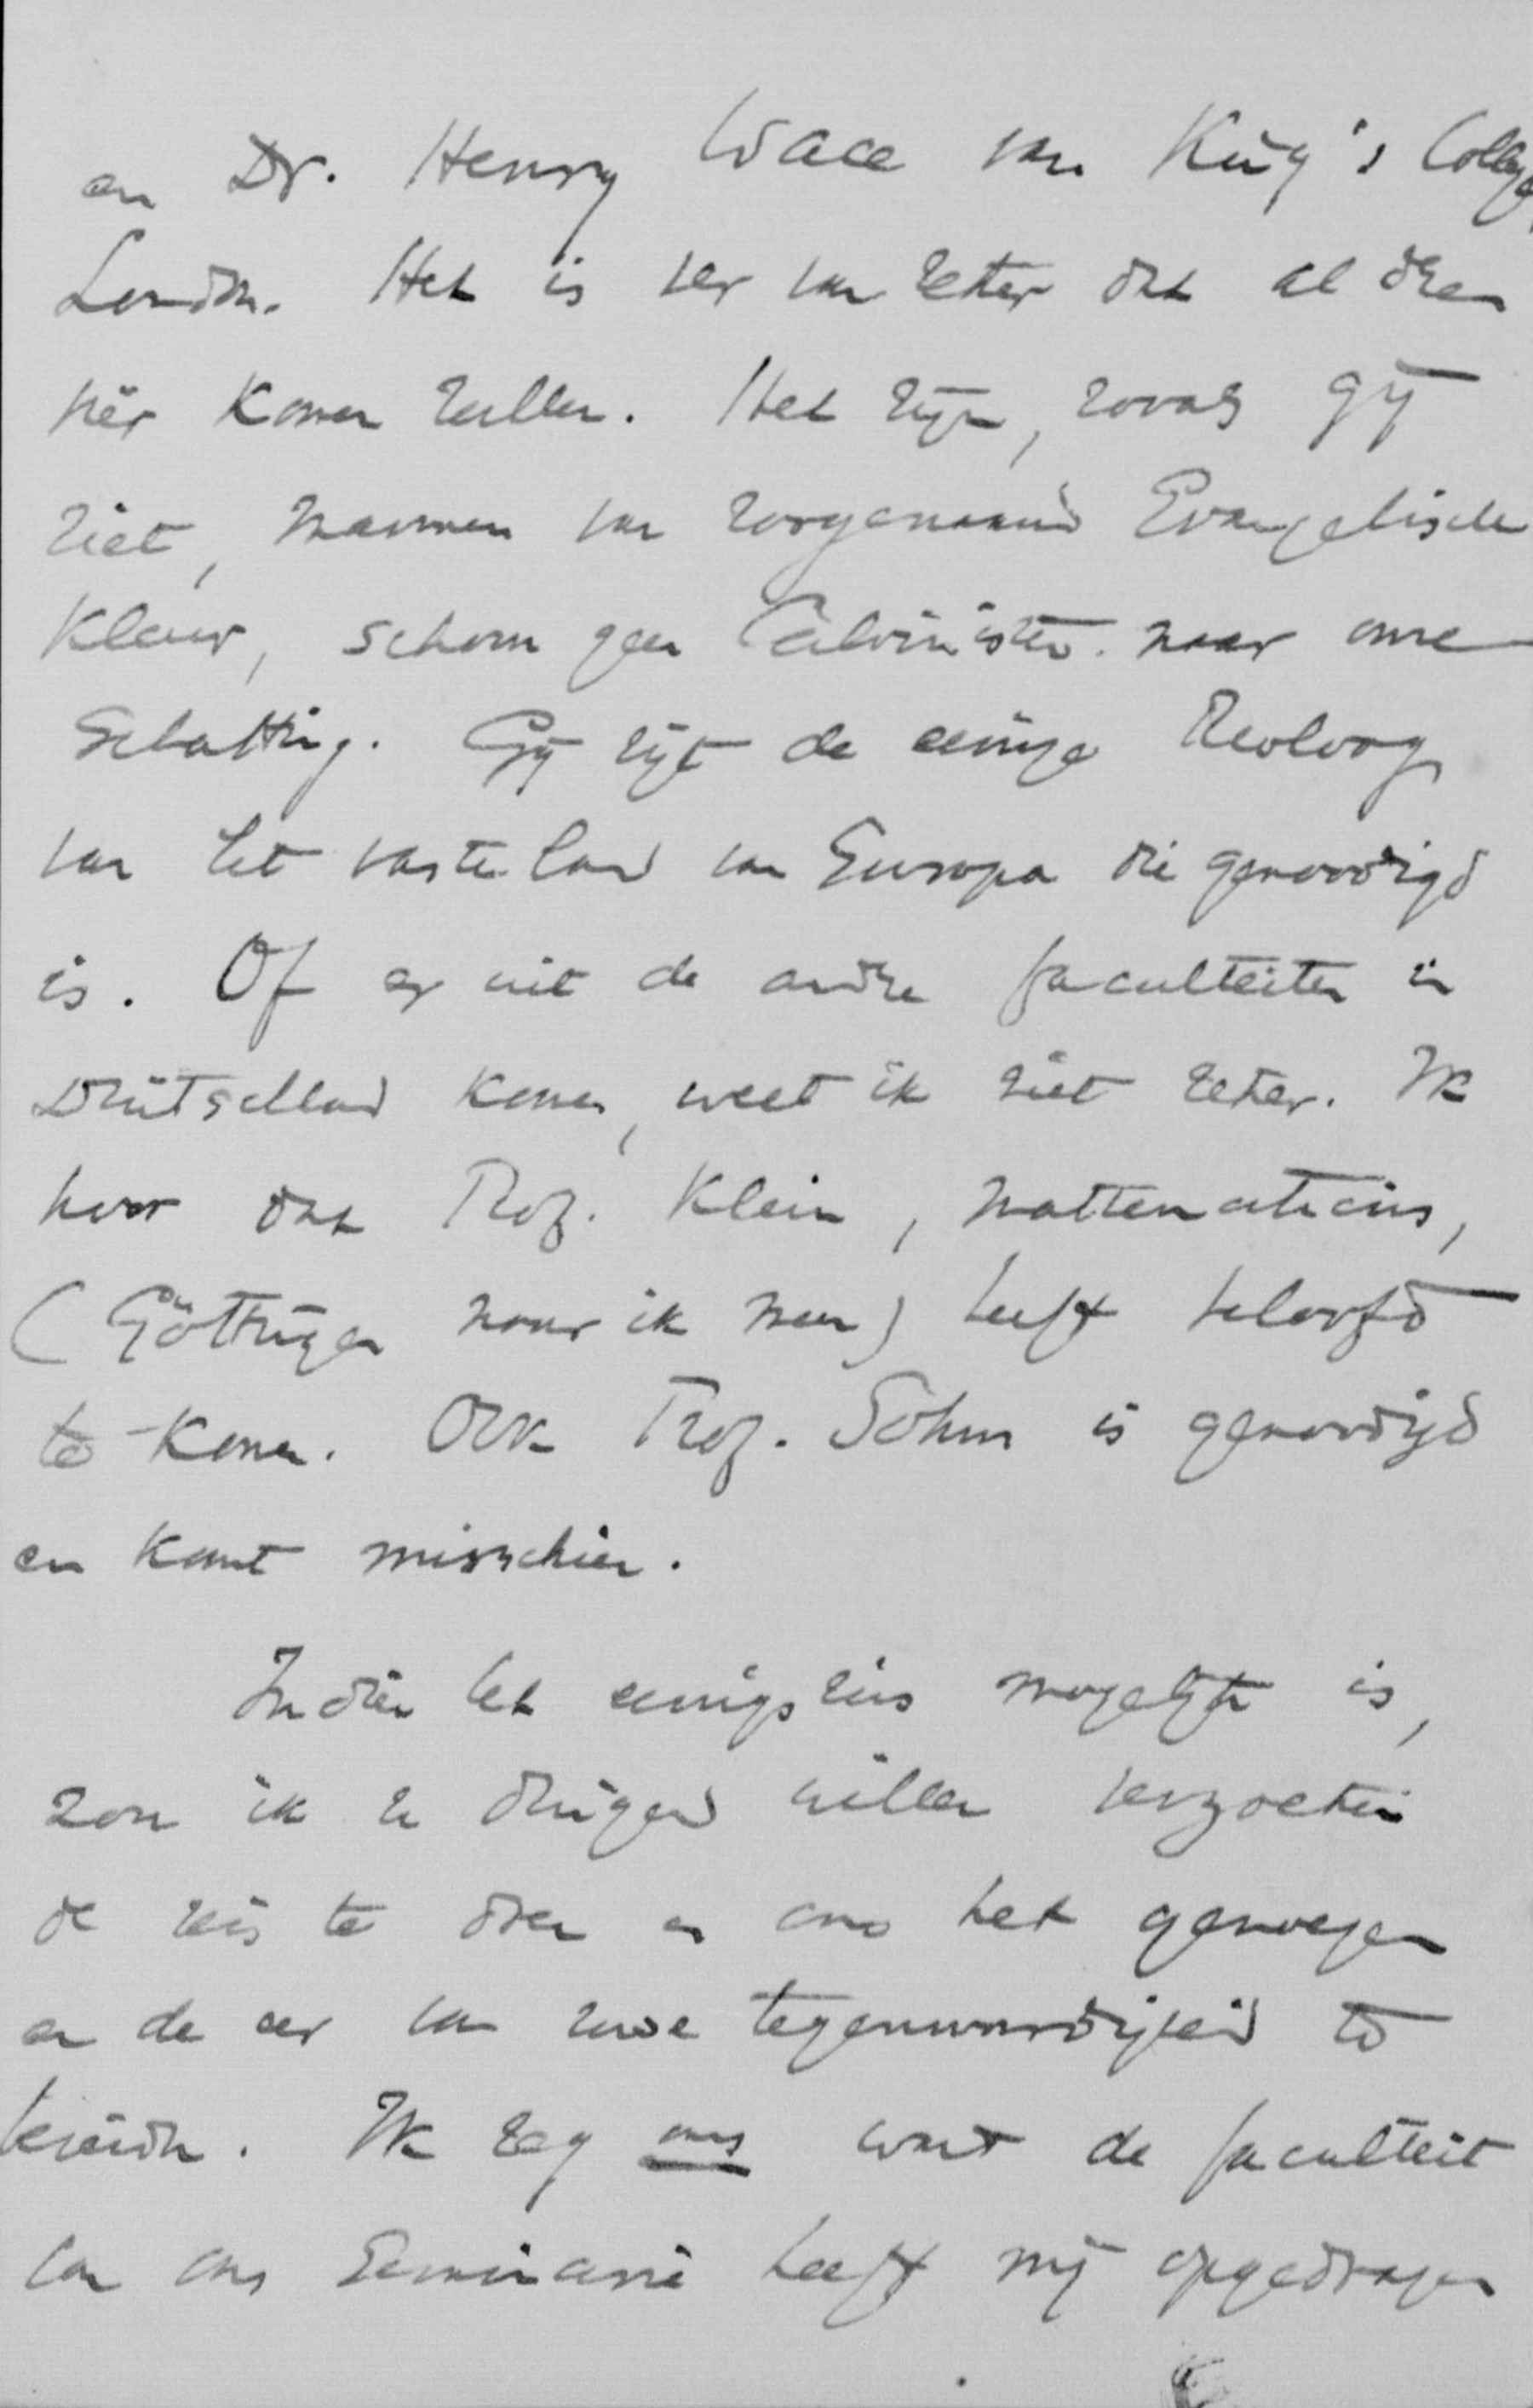 en Dr. Henry Wace van King's College
London. Het is ver van zeker dat al dezen
hier komen zullen. Het zijn, zooals gij
ziet, mannen van zoogenaamd Evangelische
kleur, schoon geen Calvinisten naar onze
schatting. Gij zijt de eenige Theoloog
van het vasteland van Europa die genoodigd
is. Of er uit de andre faculteiten in
Duitschland komen, weet ik niet zeker. Ik
hoor dat Prof. Klein, mathematicus,
(Göttingen naar ik meen) heeft beloofd
te komen. Ook Prof. Sohm is genoodigd
en komt misschien.
Indien het eenigszins mogelijk is,
zou ik U dringend willen verzoeken
de reis te doen en ons het genoegen
en de eer van uwe tegenwoordigheid te
bereiden. Ik zeg ons want de faculteit
van ons Seminarie heeft mij opgedragen